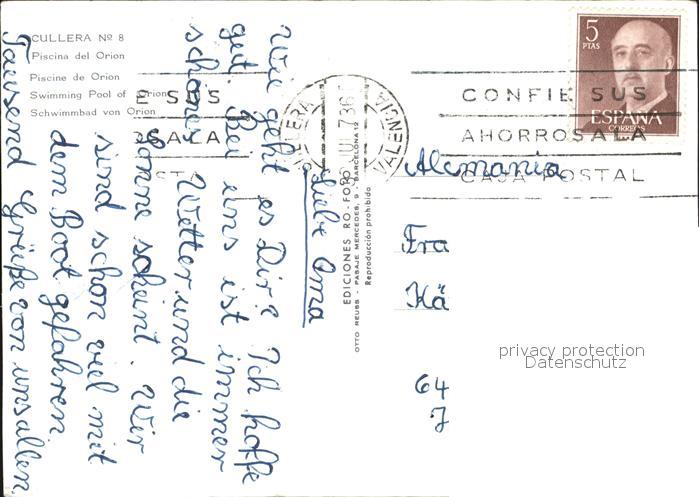 CULLERA Nº 8
Piscina del Orion
Piscine de Orion
Swimming Pool of Orion
Schwimmbad von Orion
Liebe Oma
Wie geht es Dir? Ich hoffe
gut. Bei uns ist immer
schönes Wetter und die
Sonne scheint. Wir
sind schon viel mit
dem Boot gefahren.
Tausend Grüße von uns allen.
EDICIONES RO-FORO
OTTO REUSS - PASAJE MERCEDES, 9 - BARCELONA 12
Reproducción prohibido
E SUS
SALA
CULLERA
VALENCIA
JUL 73
CONFIE SUS
AHORROS A LA
CAJA POSTAL
5
PTAS
ESPAÑA
CORREOS
Alemania
Fra
Kä
64
7
privacy protection
Datenschutz